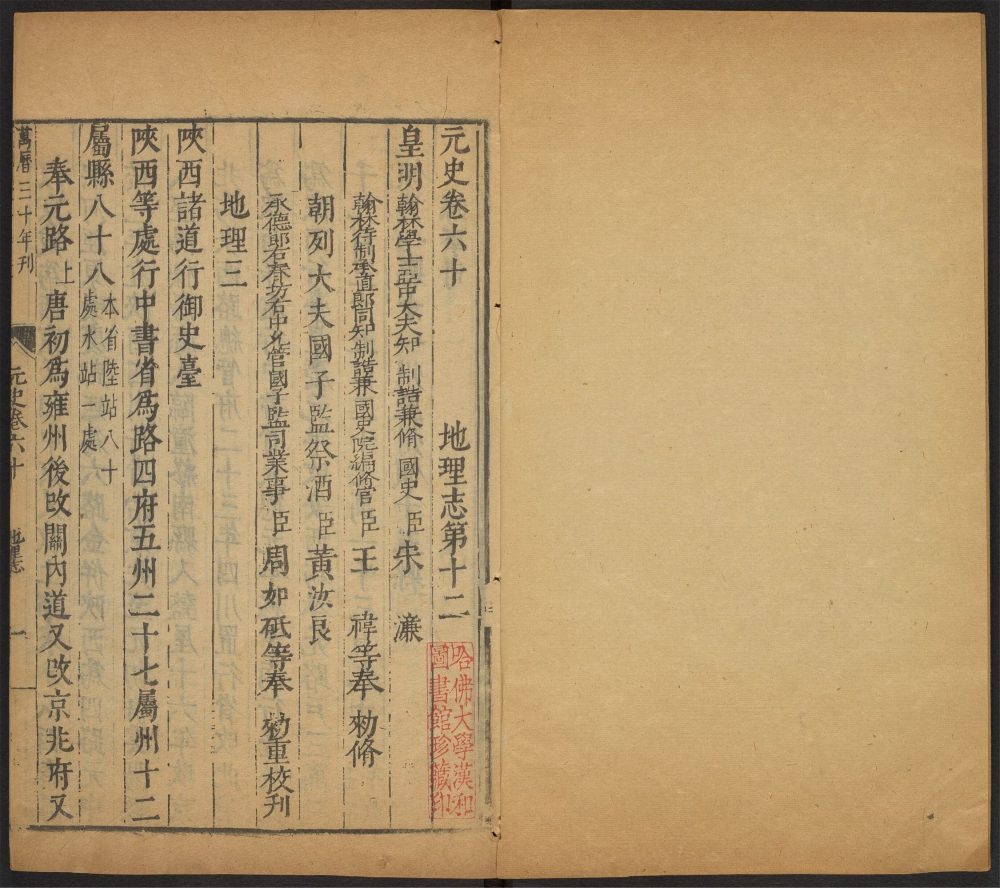 元史卷六十 地理志第十二
皇明翰林學士亞中大夫知 制誥兼脩 國史臣宋 濂
翰林待制承直郎同知制誥兼國史院編脩官臣王 禕等奉 勑脩
朝列大夫國子監祭酒臣黃汝良
承德郎右春坊右中允管國子監司業事臣周如砥等奉 勑重校刊
地理三
陝西諸道行御史臺
陝西等處行中書省爲路四府五州二十七屬州十二
屬縣八十八本省陸站八十處水站一處
奉元路上唐初爲雍州後改關內道又改京兆府又
萬曆三十年刊 元史卷六十 地理志 一
哈佛大學漢和
圖書館珍藏印